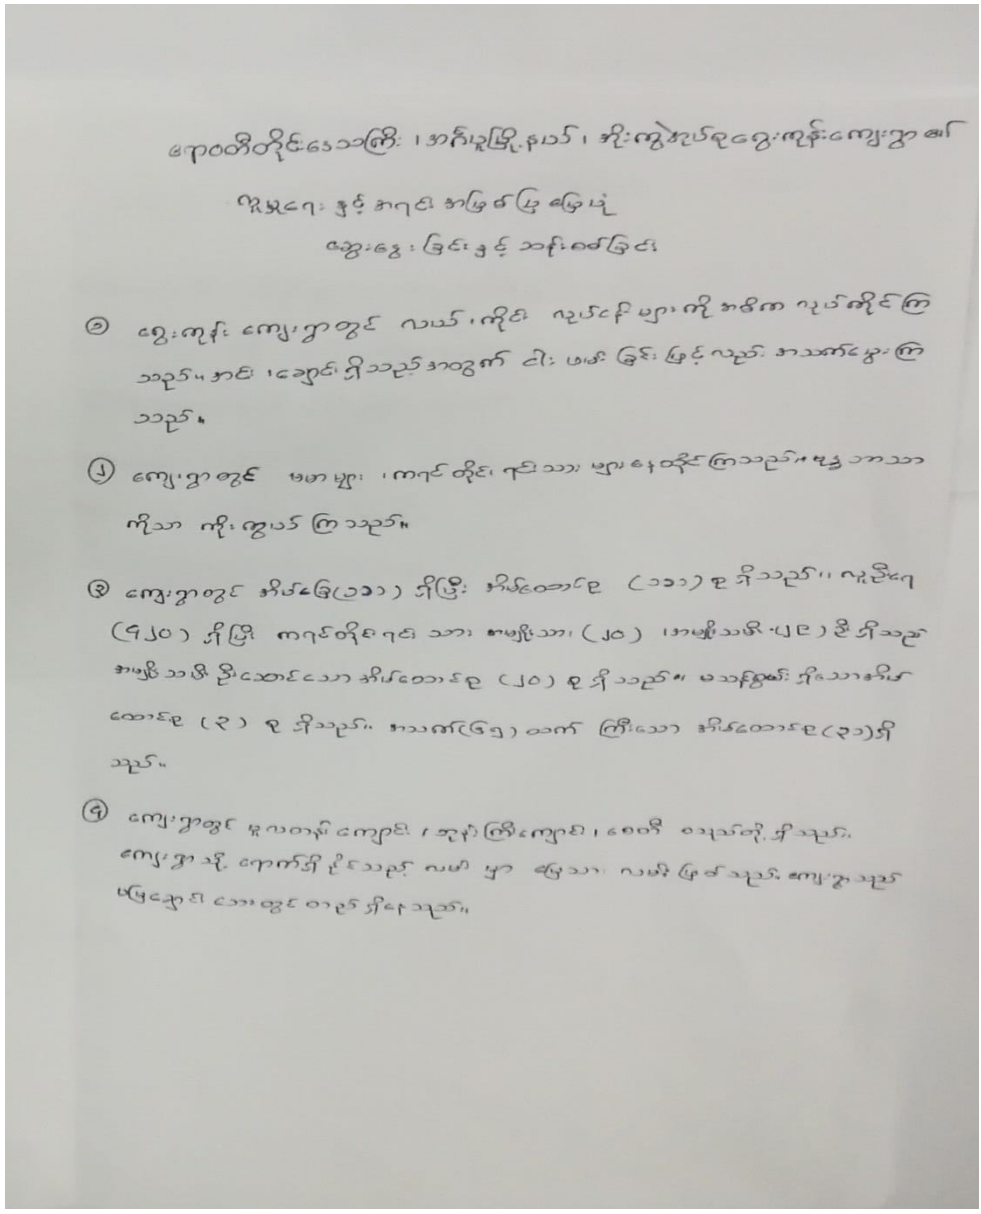 ဧရာဝတီတိုင်းဒေသကြီး ၊ အင်္ဂပူမြို့နယ် ၊ အိုးကွဲအုပ်စု ရွှေးကုန်းကျေးရွာ ၏
လူမှုရေး နှင့် အရင်း အမြစ်ပြ မြေပုံ
ဆွေးနွေး ခြင်း နှင့် သန်းစစ်ခြင်း
① ရွှေးကုန်း ကျေးရွာတွင် လယ် ၊ ကိုင်း လုပ်ငန်း များကို အဓိက လုပ်ကိုင်ကြ
သည်။ အင်း ၊ ချောင်း ရှိသည့်အတွက် ငါး ဖမ်း ခြင်း ဖြင့်လည်း အသက်မွေးကြ
သည်။
② ကျေးရွာတွင် ဗမာများ ၊ ကရင်တိုင်း ရင်းသား များနေထိုင်ကြသည်။ ဗုဒ္ဓဘာသာ
ကိုသာ ကိုးကွယ် ကြ သည်။
③ ကျေးရွာတွင် အိမ်ခြေ(၁၁၁) ရှိပြီး အိမ်ထောင်စု (၁၁၁) စု ရှိသည်။ လူဦးရေ
(၄၂၀) ရှိပြီး ကရင်တိုင်းရင်း သား အမျိုးသား (၂၀) ၊ အမျိုးသမီး (၂၉) ဦး ရှိသည်
အမျိုး သမီး ဦးဆောင်သော အိမ်ထောင်စု (၂၀) စု ရှိသည်။ မသန်စွမ်း ရှိသောအိမ်
ထောင်စု (၃) စု ရှိသည်။ အသက်(၆၅) ထက် ကြီးသော အိမ်ထောင်စု (၃၁)ရှိ
သည်။
④ ကျေးရွာတွင် မူလတန်း ကျောင်း ၊ ဘုန်းကြီးကျောင်း ၊ စေတီ စသည်တို့ ရှိသည်။
ကျေးရွာ သို့ ရောက်ရှိ နိုင်သည့် လမ်း မှာ မြေသား လမ်း ဖြစ်သည်။ ကျေးရွာသည်
ချောင်း ဘေးတွင် တည် ရှိနေ သည်။